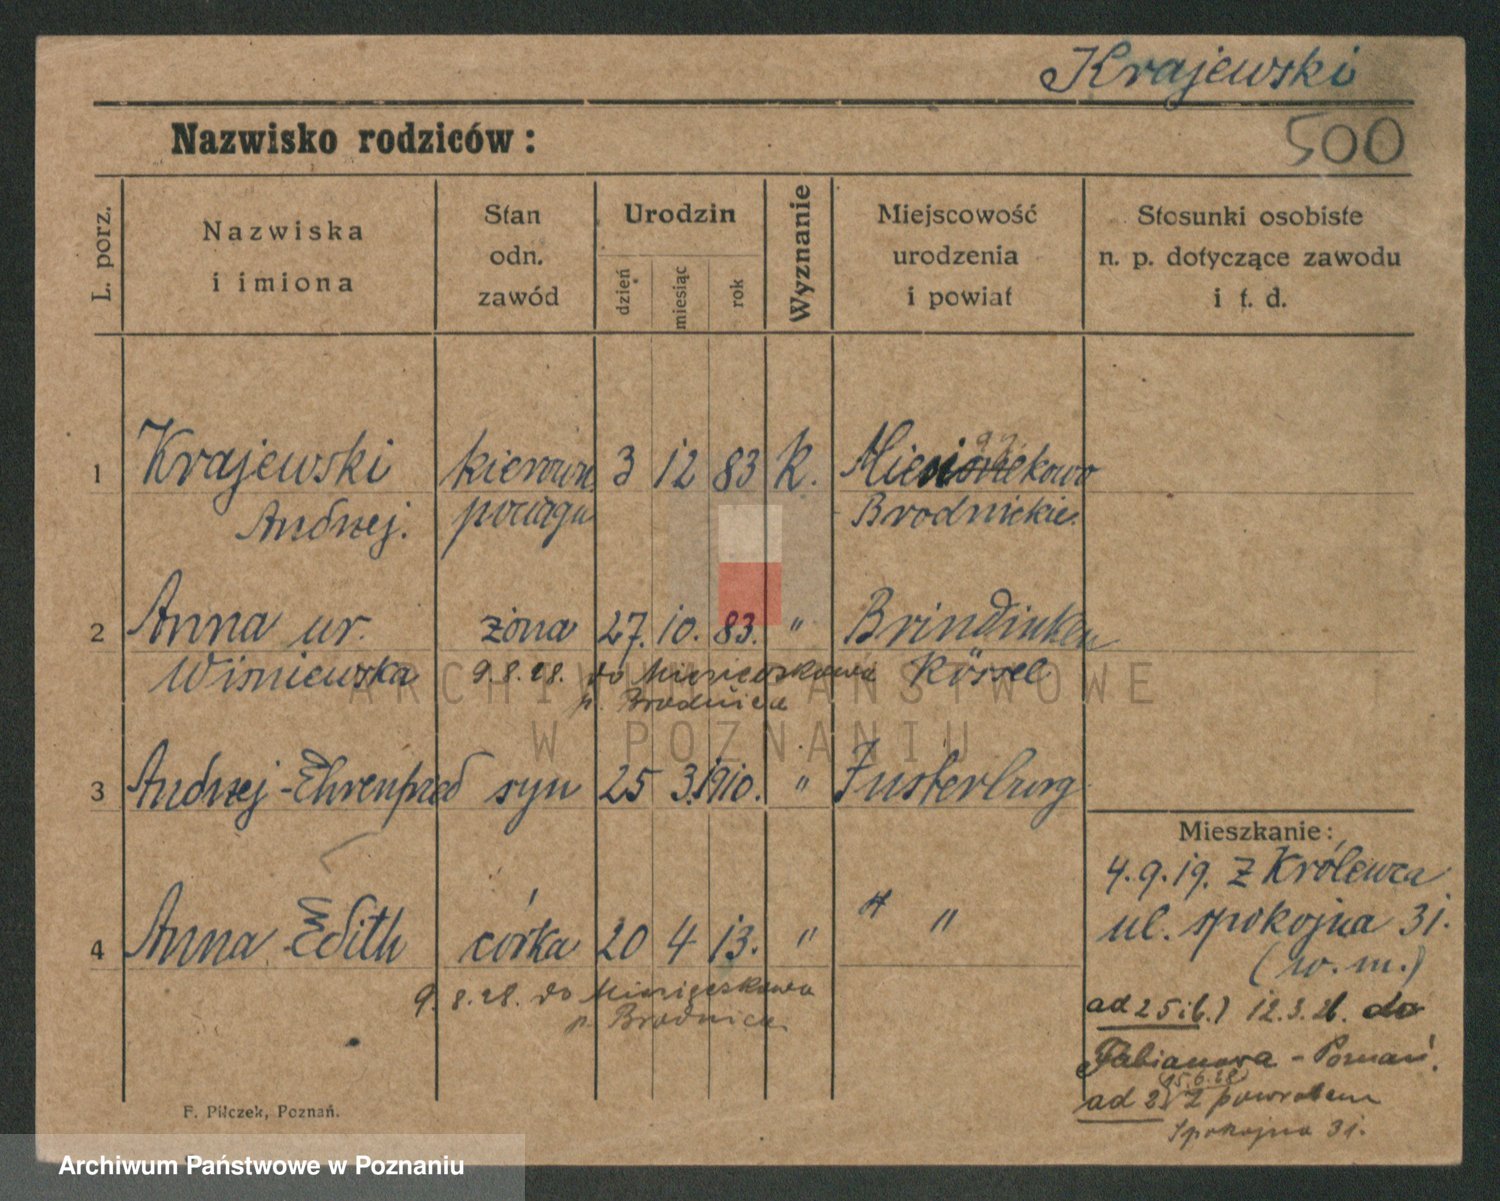 Krajewski
500
Nazwisko rodziców:
L. porz.
Nazwiska
i imiona
Stan
odn.
zawód
Urodzin
dzień
miesiąc
rok
Wyznanie
Miejscowość
urodzenia
i powiat
Stosunki osobiste
n. p. dotyczące zawodu
i t. d.
1 Krajewski kierown. 3 12 83 k.
Andrzej. pociągu Brodnickie.
2 Anna ur. żona 27. 10. 83. " Brindinken
Wiśniewska 9.8.28. do Rössel
p. Brodnica
3 Andrzej-Ehrenfried syn 25 3. 1910. " Insterburg
4 Anna Edith córka 20 4 13. " " "
9.8.28. do
p. Brodnica
Mieszkanie:
4.9.19. z Królewca
ul. spokojna 31.
(w. m.)
12.3.26. do
Fabianowa - Poznań.
15.6.28
ad 2 z powrotem
Spokojna 31.
F. Pilczek, Poznań.
ARCHIWUM PAŃSTWOWE
W POZNANIU
Archiwum Państwowe w Poznaniu